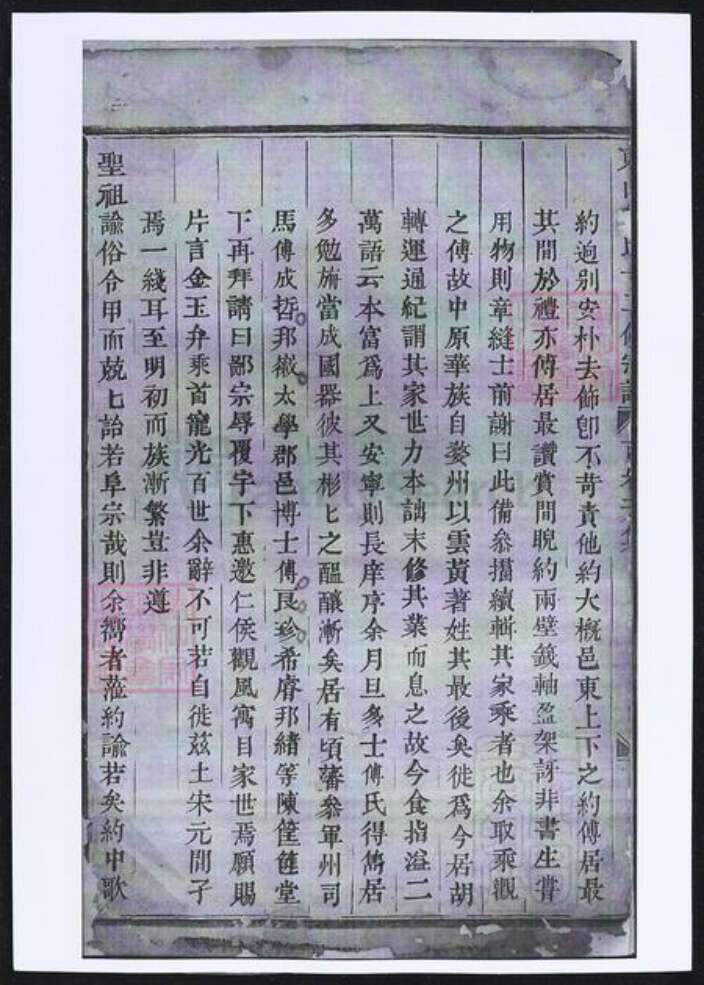 約逈别安朴去飾卽不苛責他約大概邑東上下之約傅居最
其間於禮亦傅居最讚賞間睨約兩壁籤軸盈架訝非書生嘗
用物則章縫士前謝曰此備叅搵續輯其家乘者也余取乘觀
之傅故中原華族自婺州以雲黃著姓其最後矣徙爲今居胡
轉運通紀謂其家世力本詘末修其業而息之故今食指溢二
萬語云本富爲上又安寧則長庠序余月旦多士傅氏得雋居
多勉旃當成國器彼其彬匕之醞釀漸矣居有頃蕃叅軍州司
馬傅成哲邦徽太學郡邑博士傅良珍希廥邦緒等陳筐篚堂
下再拜請曰鄙宗辱覆宇下惠邀仁侯觀風寓目家世焉願賜
片言金玉弁乘首寵光百世余辭不可若自徙茲土宋元間子
焉一綫耳至明初而族漸繁豈非遵
聖祖諭俗令甲而兢七詒若阜宗哉則余嚮者蒞約諭若矣約中歌